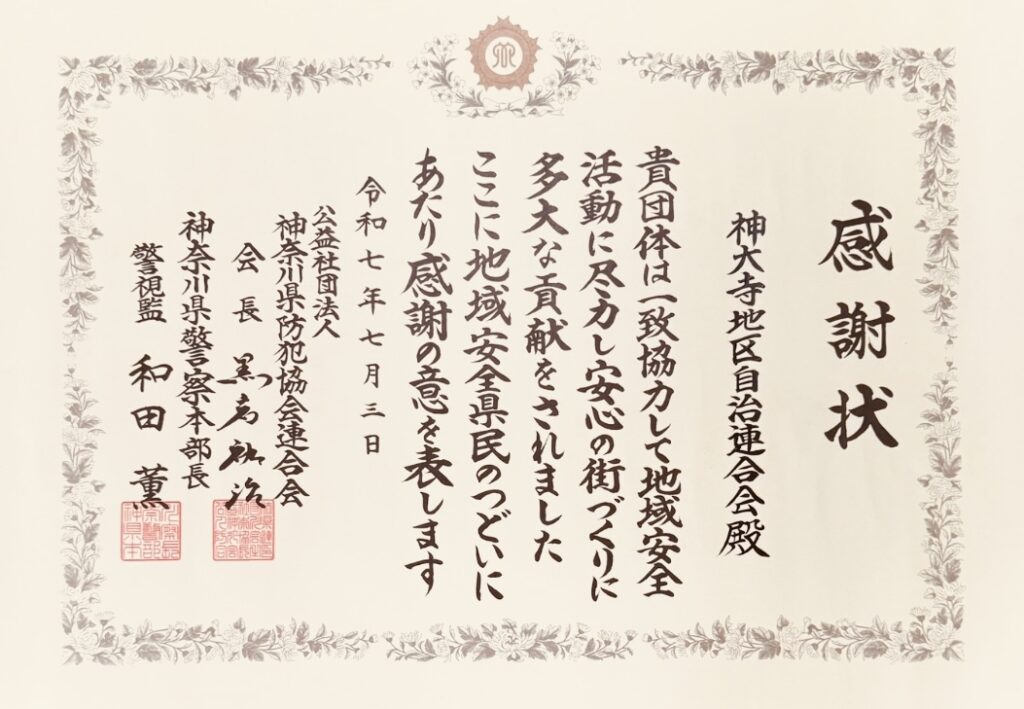 感謝状
神大寺地区自治連合会殿
貴団体は一致協力して地域安全
活動に尽力し安心の街づくりに
多大な貢献をされました
ここに地域安全県民のつどいに
あたり感謝の意を表します
令和七年七月三日
公益社団法人
神奈川県防犯協会連合会
会長
神奈川県警察本部長
警視監 和田薫